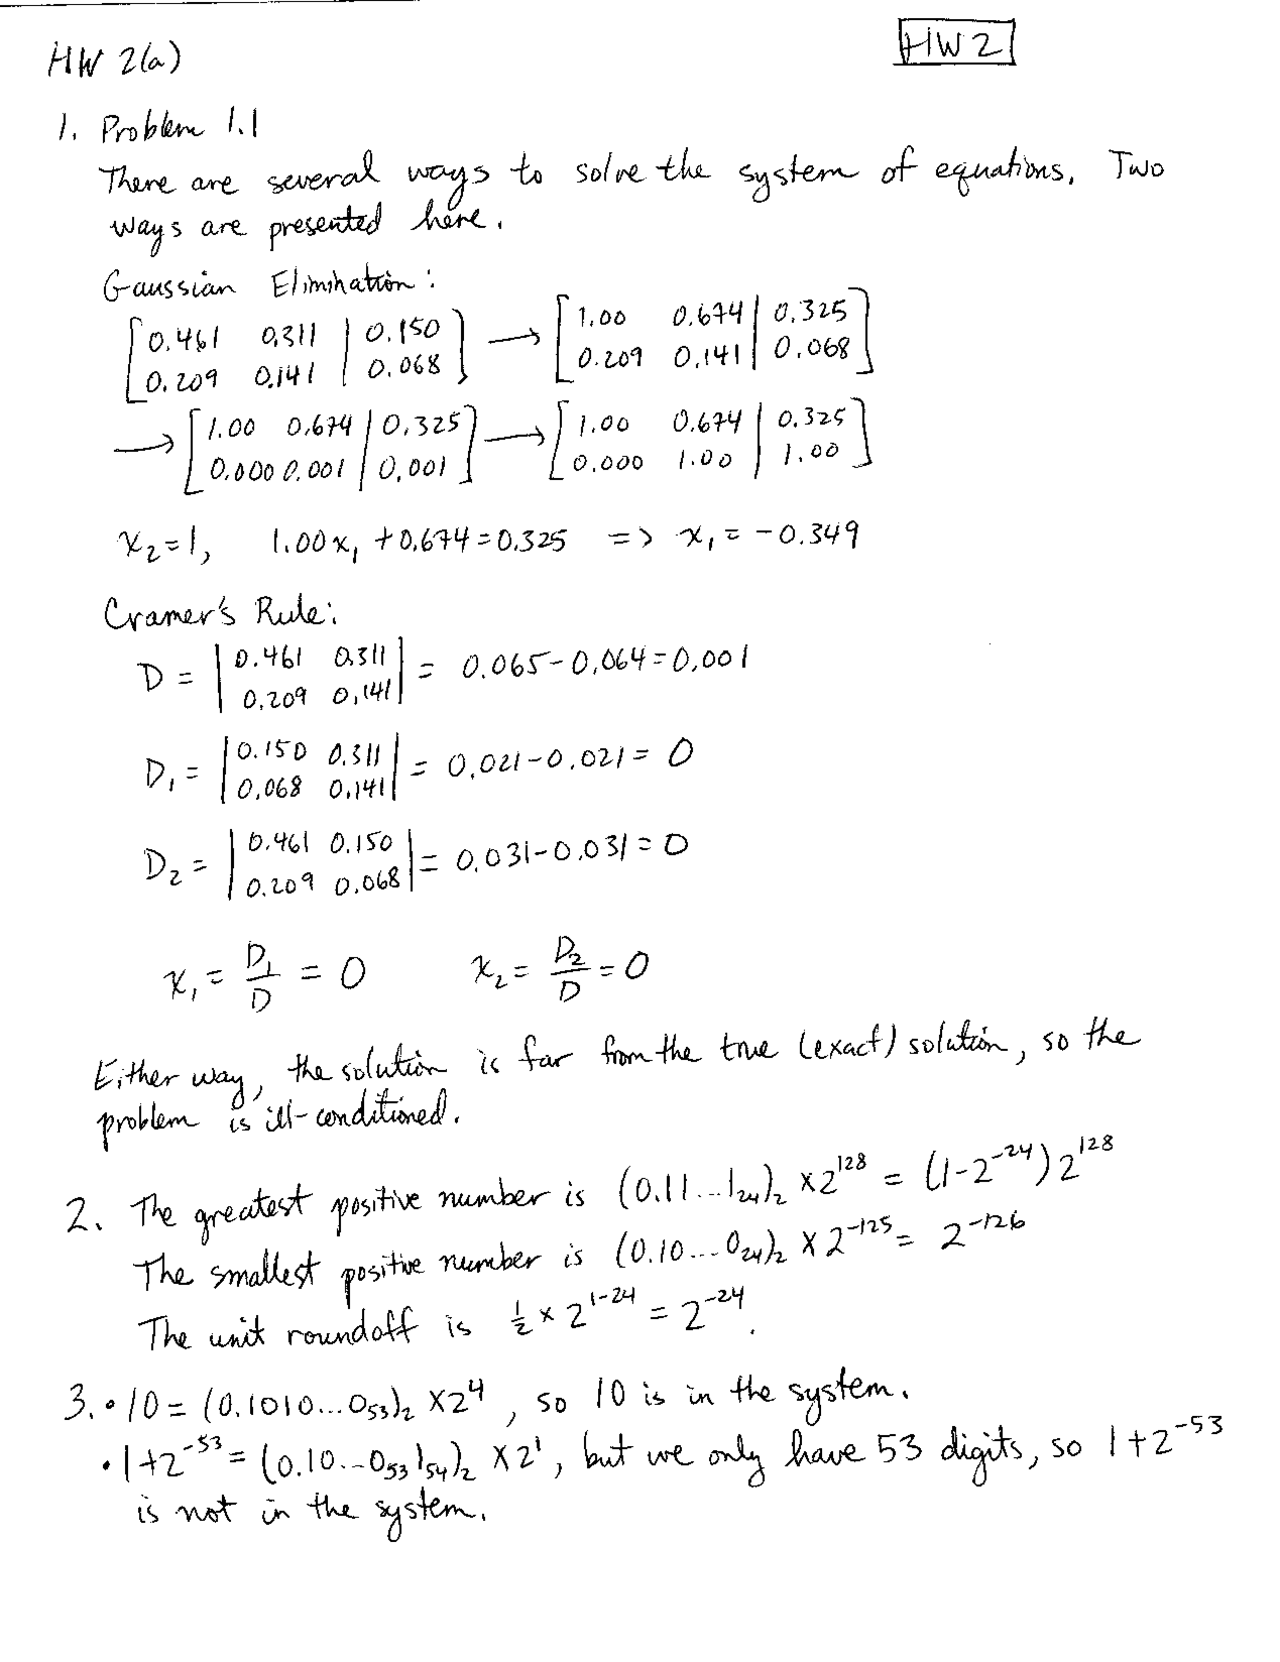 HW 2(a)
HW 2
1. Problem 1.1
There are several ways to solve the system of equations. Two
ways are presented here.
Gaussian Elimination:
[0.461 0.311 | 0.150] → [1.00 0.674 | 0.325]
[0.209 0.141 | 0.068] [0.209 0.141 | 0.068]
→ [1.00 0.674 | 0.325] → [1.00 0.674 | 0.325]
[0.000 0.001 | 0.001] [0.000 1.00 | 1.00]
x₂=1, 1.00x₁+0.674=0.325 => x₁=-0.349
Cramer's Rule:
D = |0.461 0.311| = 0.065-0.064=0.001
|0.209 0.141|
D₁ = |0.150 0.311| = 0.021-0.021=0
|0.068 0.141|
D₂ = |0.461 0.150| = 0.031-0.031=0
|0.209 0.068|
x₁ = D₁/D = 0 x₂ = D₂/D = 0
Either way, the solution is far from the true (exact) solution, so the
problem is ill-conditioned.
2. The greatest positive number is (0.11...1₂₄)₂ ×2¹²⁸ = (1-2⁻²⁴)2¹²⁸
The smallest positive number is (0.10...0₂₄)₂ × 2⁻¹²⁵ = 2⁻¹²⁶
The unit roundoff is ½ × 2¹⁻²⁴ = 2⁻²⁴.
3. • 10 = (0.1010...0₅₃)₂ ×2⁴, so 10 is in the system.
• 1+2⁻⁵³ = (0.10...0₅₃1₅₄)₂ ×2¹, but we only have 53 digits, so 1+2⁻⁵³
is not in the system.